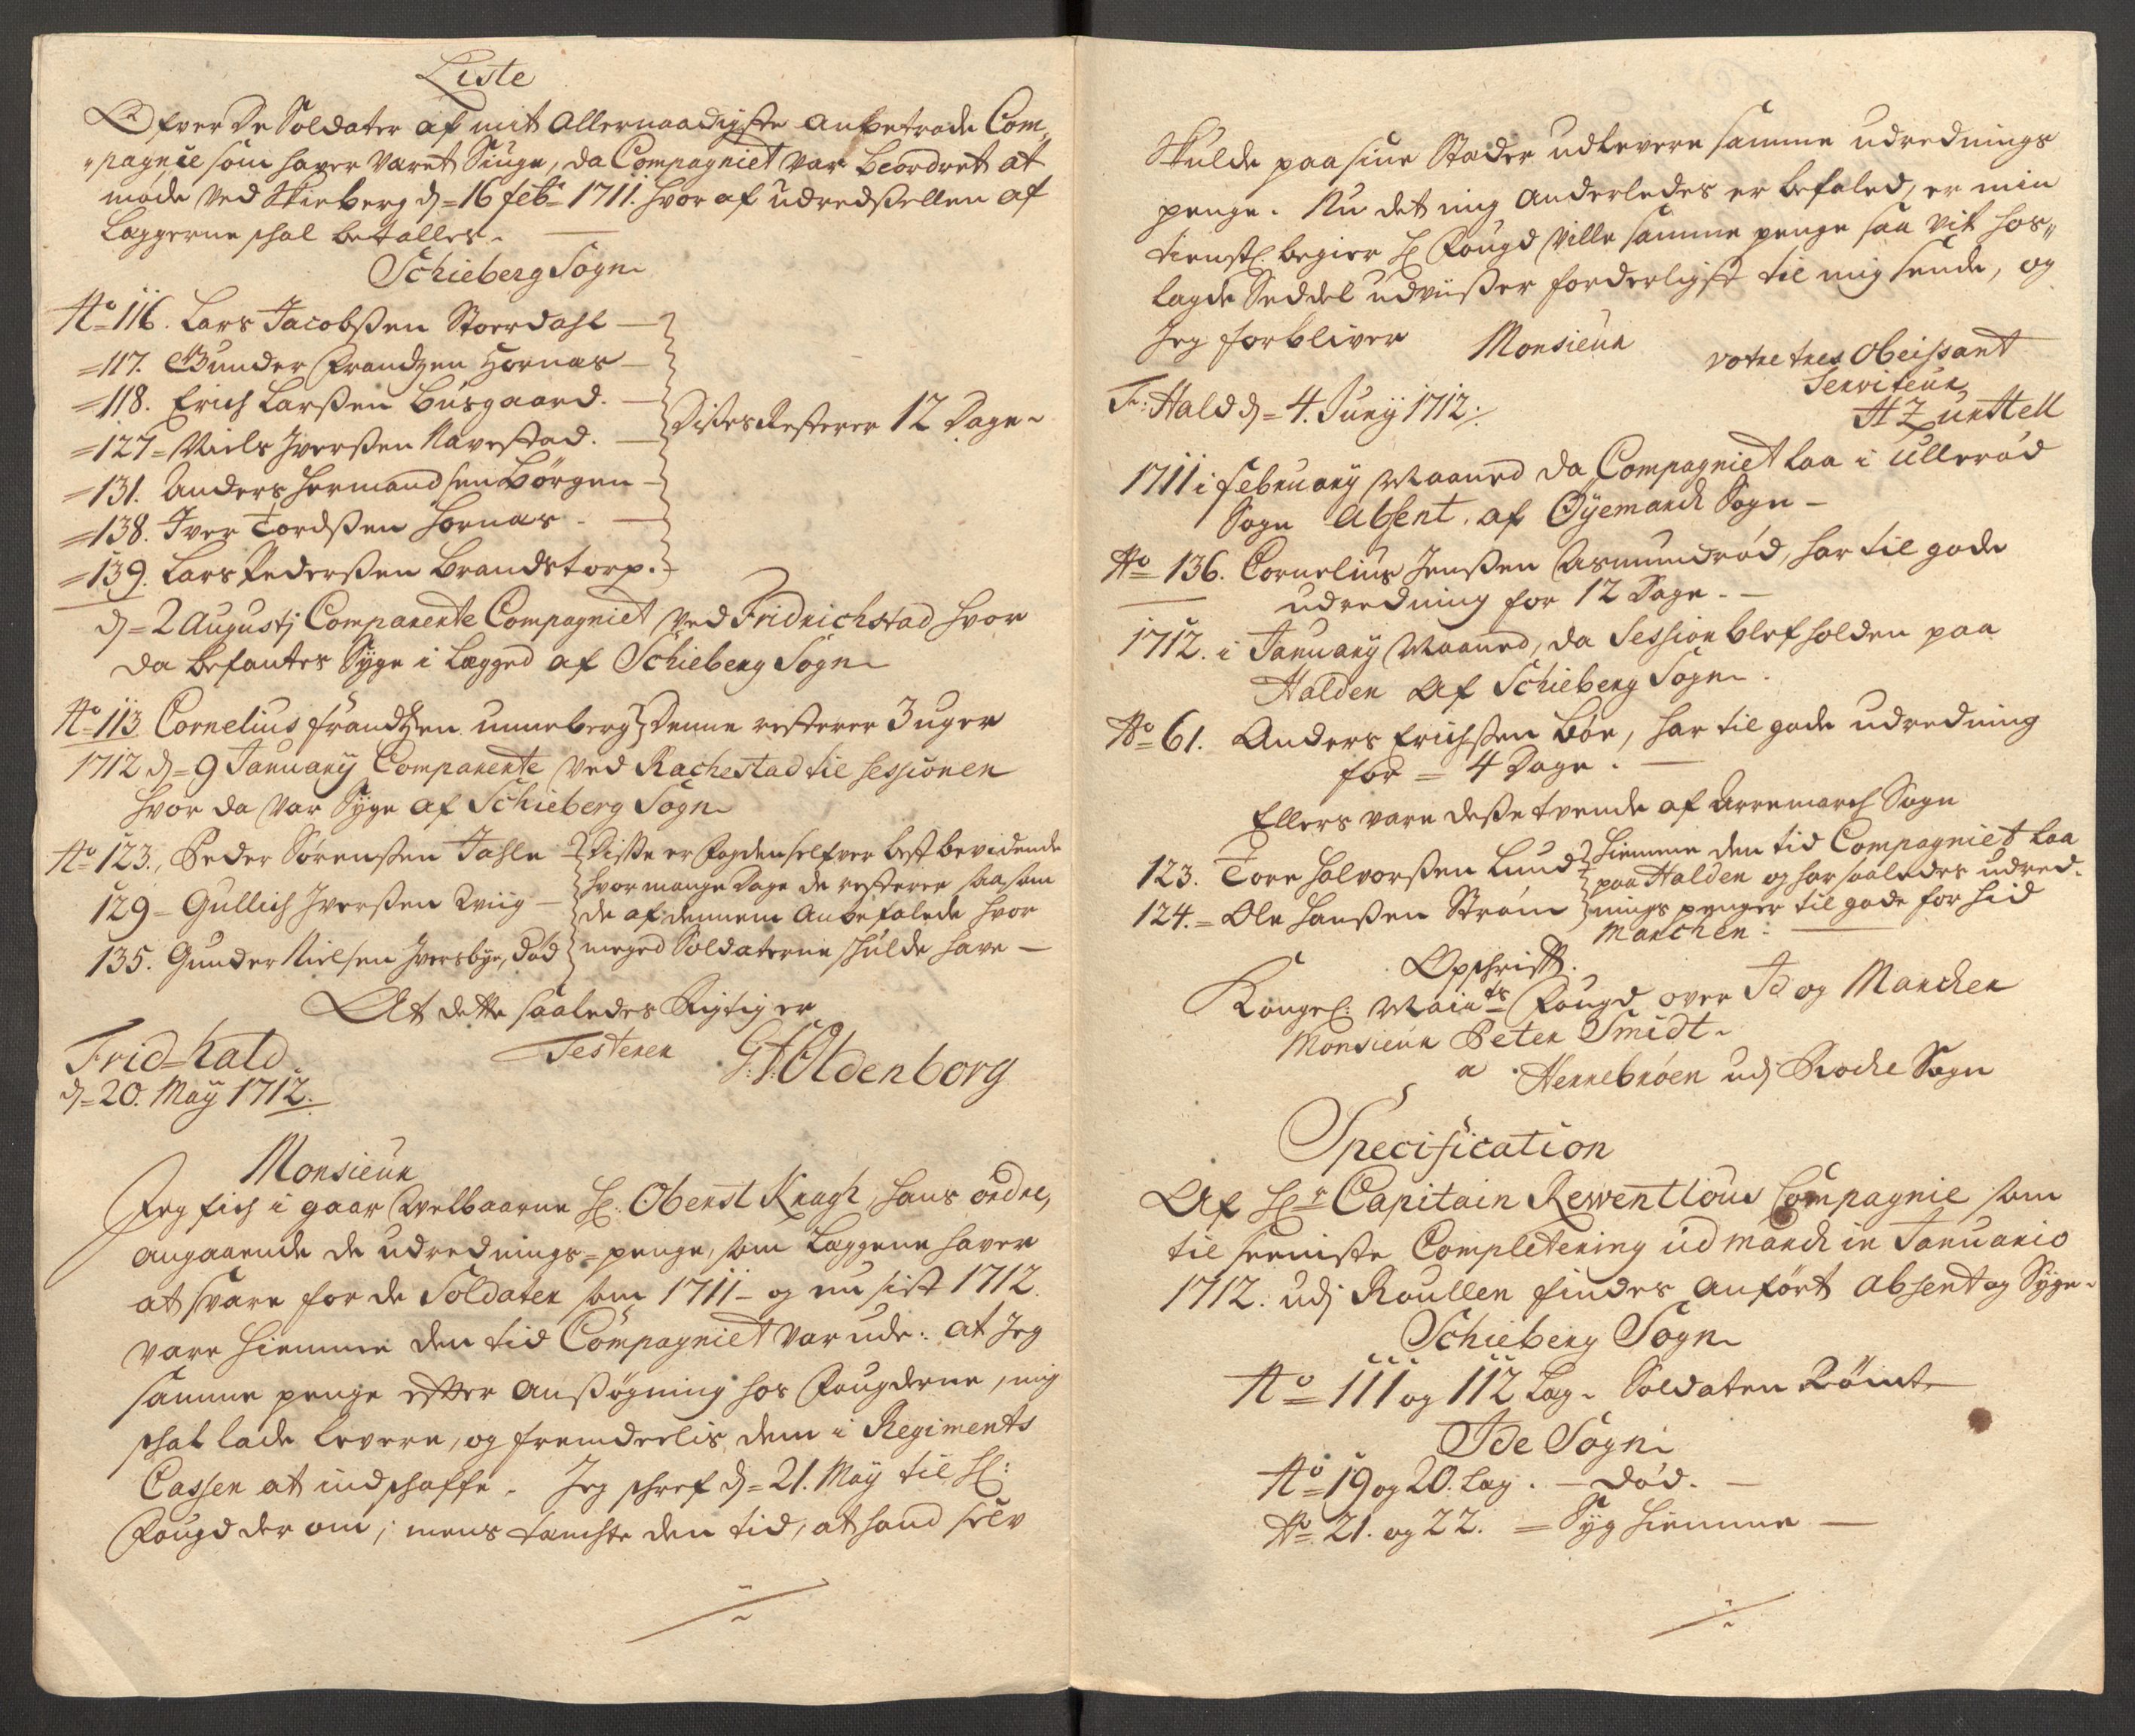 Liste
Ofver De Soldater af mit Allernaadigste anbetrode Com„
„pagnie som hafver Varet Siuge, da Compagniet var beordret at
møde Ved Skieberg d= 16 febr 1711. hvor af udredsellen af
Læggerne skal betalles.
Schieberg Sogn
No= 116. Lars Jacobsen Stoerdahl —
=117. Gunder Frandzen Hornæs —
=118. Erich Larsen Busgaard. —
=127= Niels Iversen Navestad. —
=131. Anders Hermandsen Börgen —
=138. Iver Tordsen Hornæs —
=139. Lars Pedersen Brandstorp.
Disses Resterer 12 Dage
d= 2 Augustj Comparente Compagniet Ved Fridrichstad hvor
da befantes Syge i Lægged af Schieberg Sogn
No= 113. Cornelius frandtzen unneberg Denne resterer 3 uger
1712 d= 9 January Comparente Ved Rachestad til sessionen
hvor da Var Syge af Schieberg Sogn
No= 123., Peder Sörensen Jahle
129= Gullich Iversen Qviig —
135. Gunder Nielsen Iversbye, död
Disse er Fogden selfver best bevidende
hvor mange Dage de resterer saasom
de af dennem Anbefalede hvor
meged Soldaterne skulde have —
At dette saaledes Rigtig er
Testerer G: F: Oldenborg
Frid=hald
d= 20. Maÿ 1712.
Monsieur
Jeg fich i gaar Welbaarne Hr: Oberst Kragh, hans ordre,
angaaende de udrednings=penge, som Læggene hafver
at svare for de Soldater som 1711 — og nu sist 1712.
vare hiemme den tid Compagniet var ude. at Jeg
samme penge efter ansögning hos Fougderne, mig
skal lade levere, og fremdeelis dem i Regiments
Cassen at indskaffe. Jeg skref d= 21. Maÿ til Hr:
Fougd der om, mens tænckte den tid, at hand selv
Skulde paa sine Stæder udlevere samme udrednings
penge. Nu det mig Anderledes er befaled, er min
tienstl. begier Hr Fougd Ville samme penge saa vit hos„
lagde Seddel udviiser forderligst til mig sende, og
Jeg forbliver Monsieur
votre tres obeissant
Serviteur
Fr: Hald d= 4. Junÿ 1712.
H Zünttell
1711 i februarÿ Maaned da Compagniet laa i ullerød
Sogn Absent. af Øÿemarck Sogn —
No 136. Cornelius Jensen Asmundröd, har til gode
udredning for 12 Dage. —
1712. i Januarÿ Maaned, da Session blef holden paa
Halden Af Schieberg Sogn.
No= 61. Anders Erichsen Böe, har til gode udredning
for = 4 Dage. —
Ellers vare desse tvende af Arremarch Sogn
123. Tore Halvorsen Lund
124.= Ole Hansen Ström
hiemme den tid Compagniet laa
paa Halden og har saaledes udred-
nings penger til gode for hid
Marchen: —
Opschrifft.
Kongel: Maits Fougd over Id og Marcker
Monsieur Peter Smidt
a Herrebröen udj Rocke Sogn
Specification
Af Hr Capitain Rewentlous Compagnie som
til seeniste Completering udmarch in Januario
1712. udj Roullen findes anfört absent og Syge
Schieberg Sogn
No= 111 og 112 Læg. Soldaten Römt
Ide Sogn
No= 19 og 20. Læg. — död. —
No= 21. og 22. = Syg hiemme —